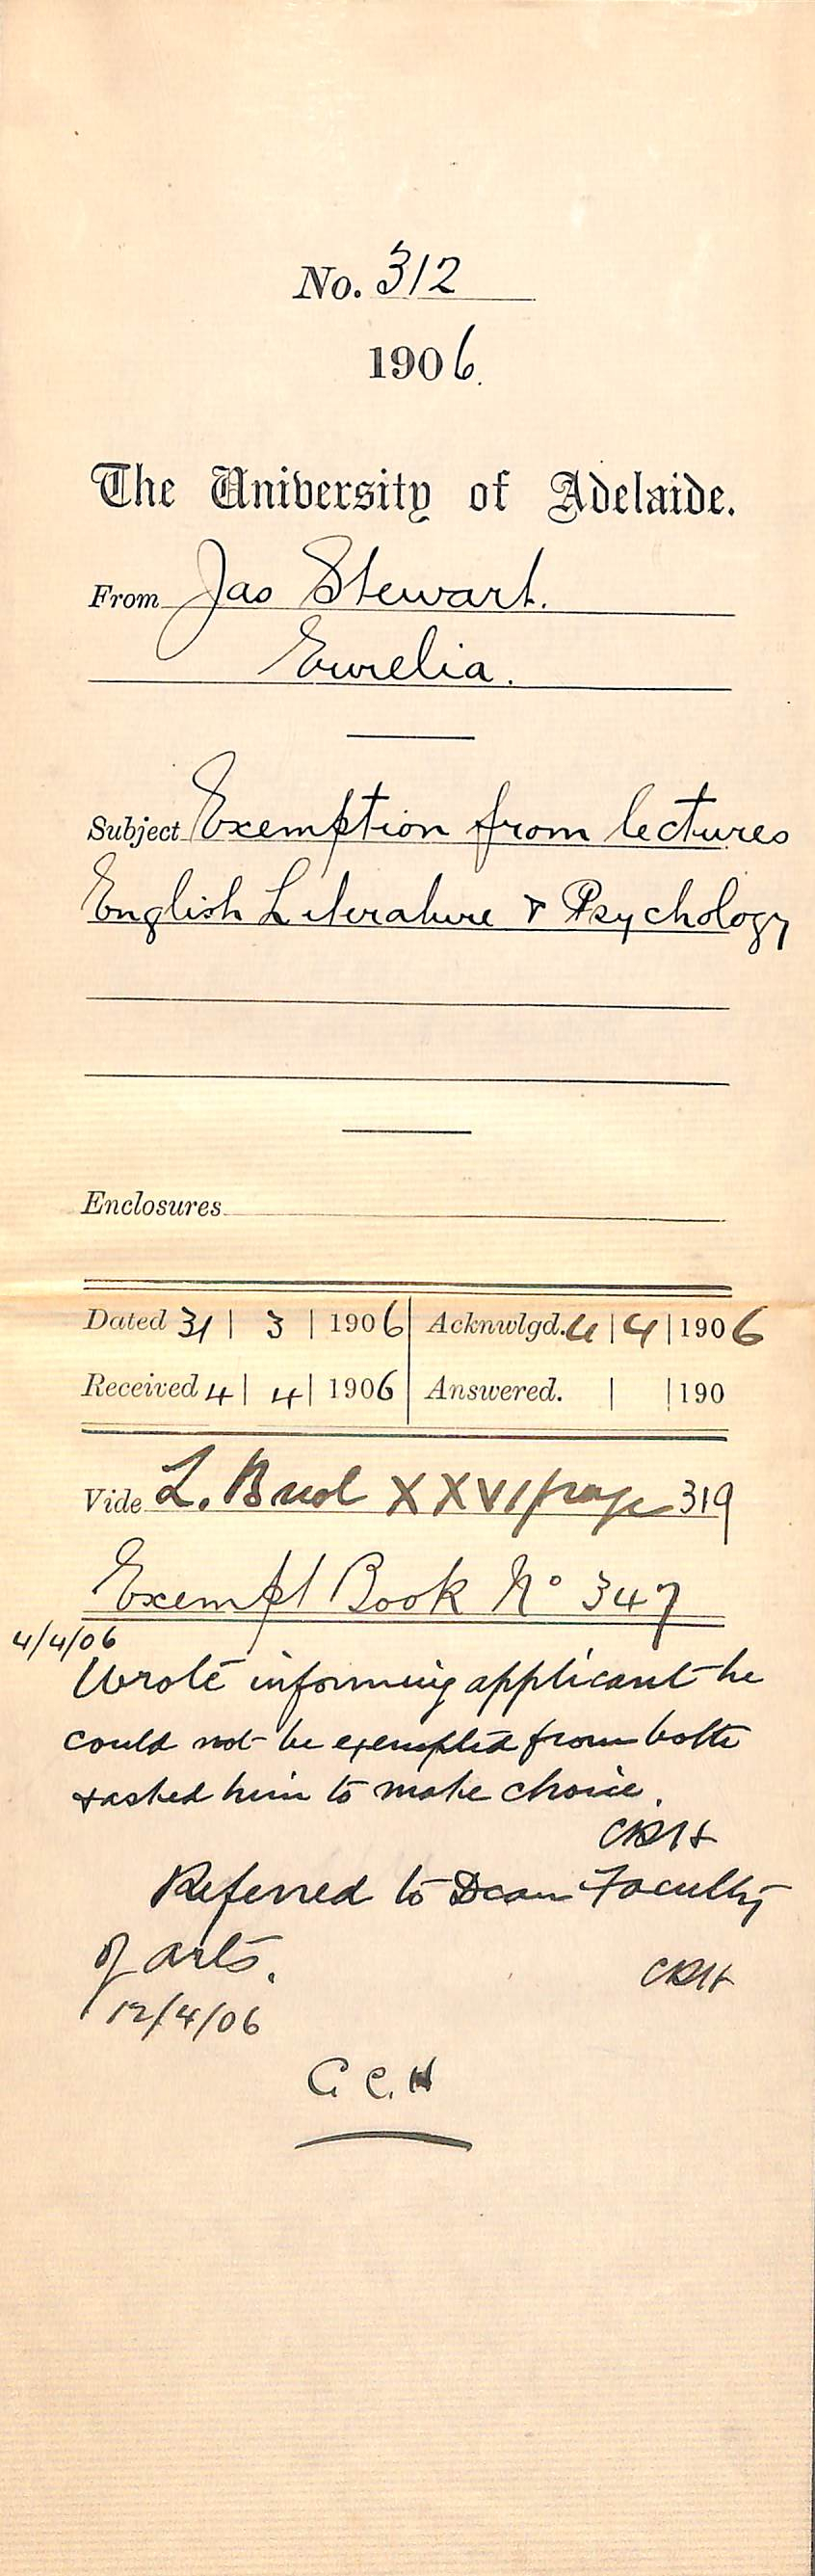 No. 312
1906.
The University of Adelaide.
From Jas Stewart.
Eurelia.
Subject Exemption from lectures
English Literature & Psychology
Enclosures
Dated 31 | 3 | 1906 | Acknwlgd. 4 | 4 | 1906
Received 4 | 4 | 1906 | Answered. | | 190
Vide L. Book XXVI page 319
Exempt Book No 347
4/4/06
Wrote informing applicant he
could not be exempted from both
& asked him to make choice.
CRH
Referred to Dean Faculty
of arts.
CRH
12/4/06
G C. H